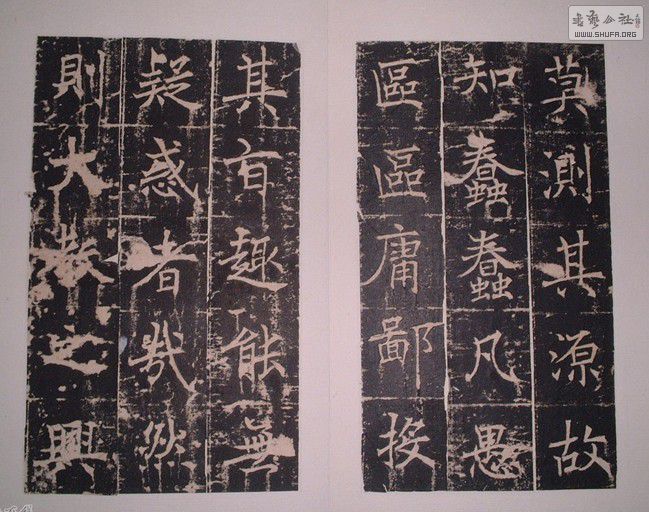 莫測其源故
知蠢蠢凡愚
區區庸鄙投
其旨趣能無
疑惑者哉然
則大教之興
書藝公社
WWW.SHUFA.ORG